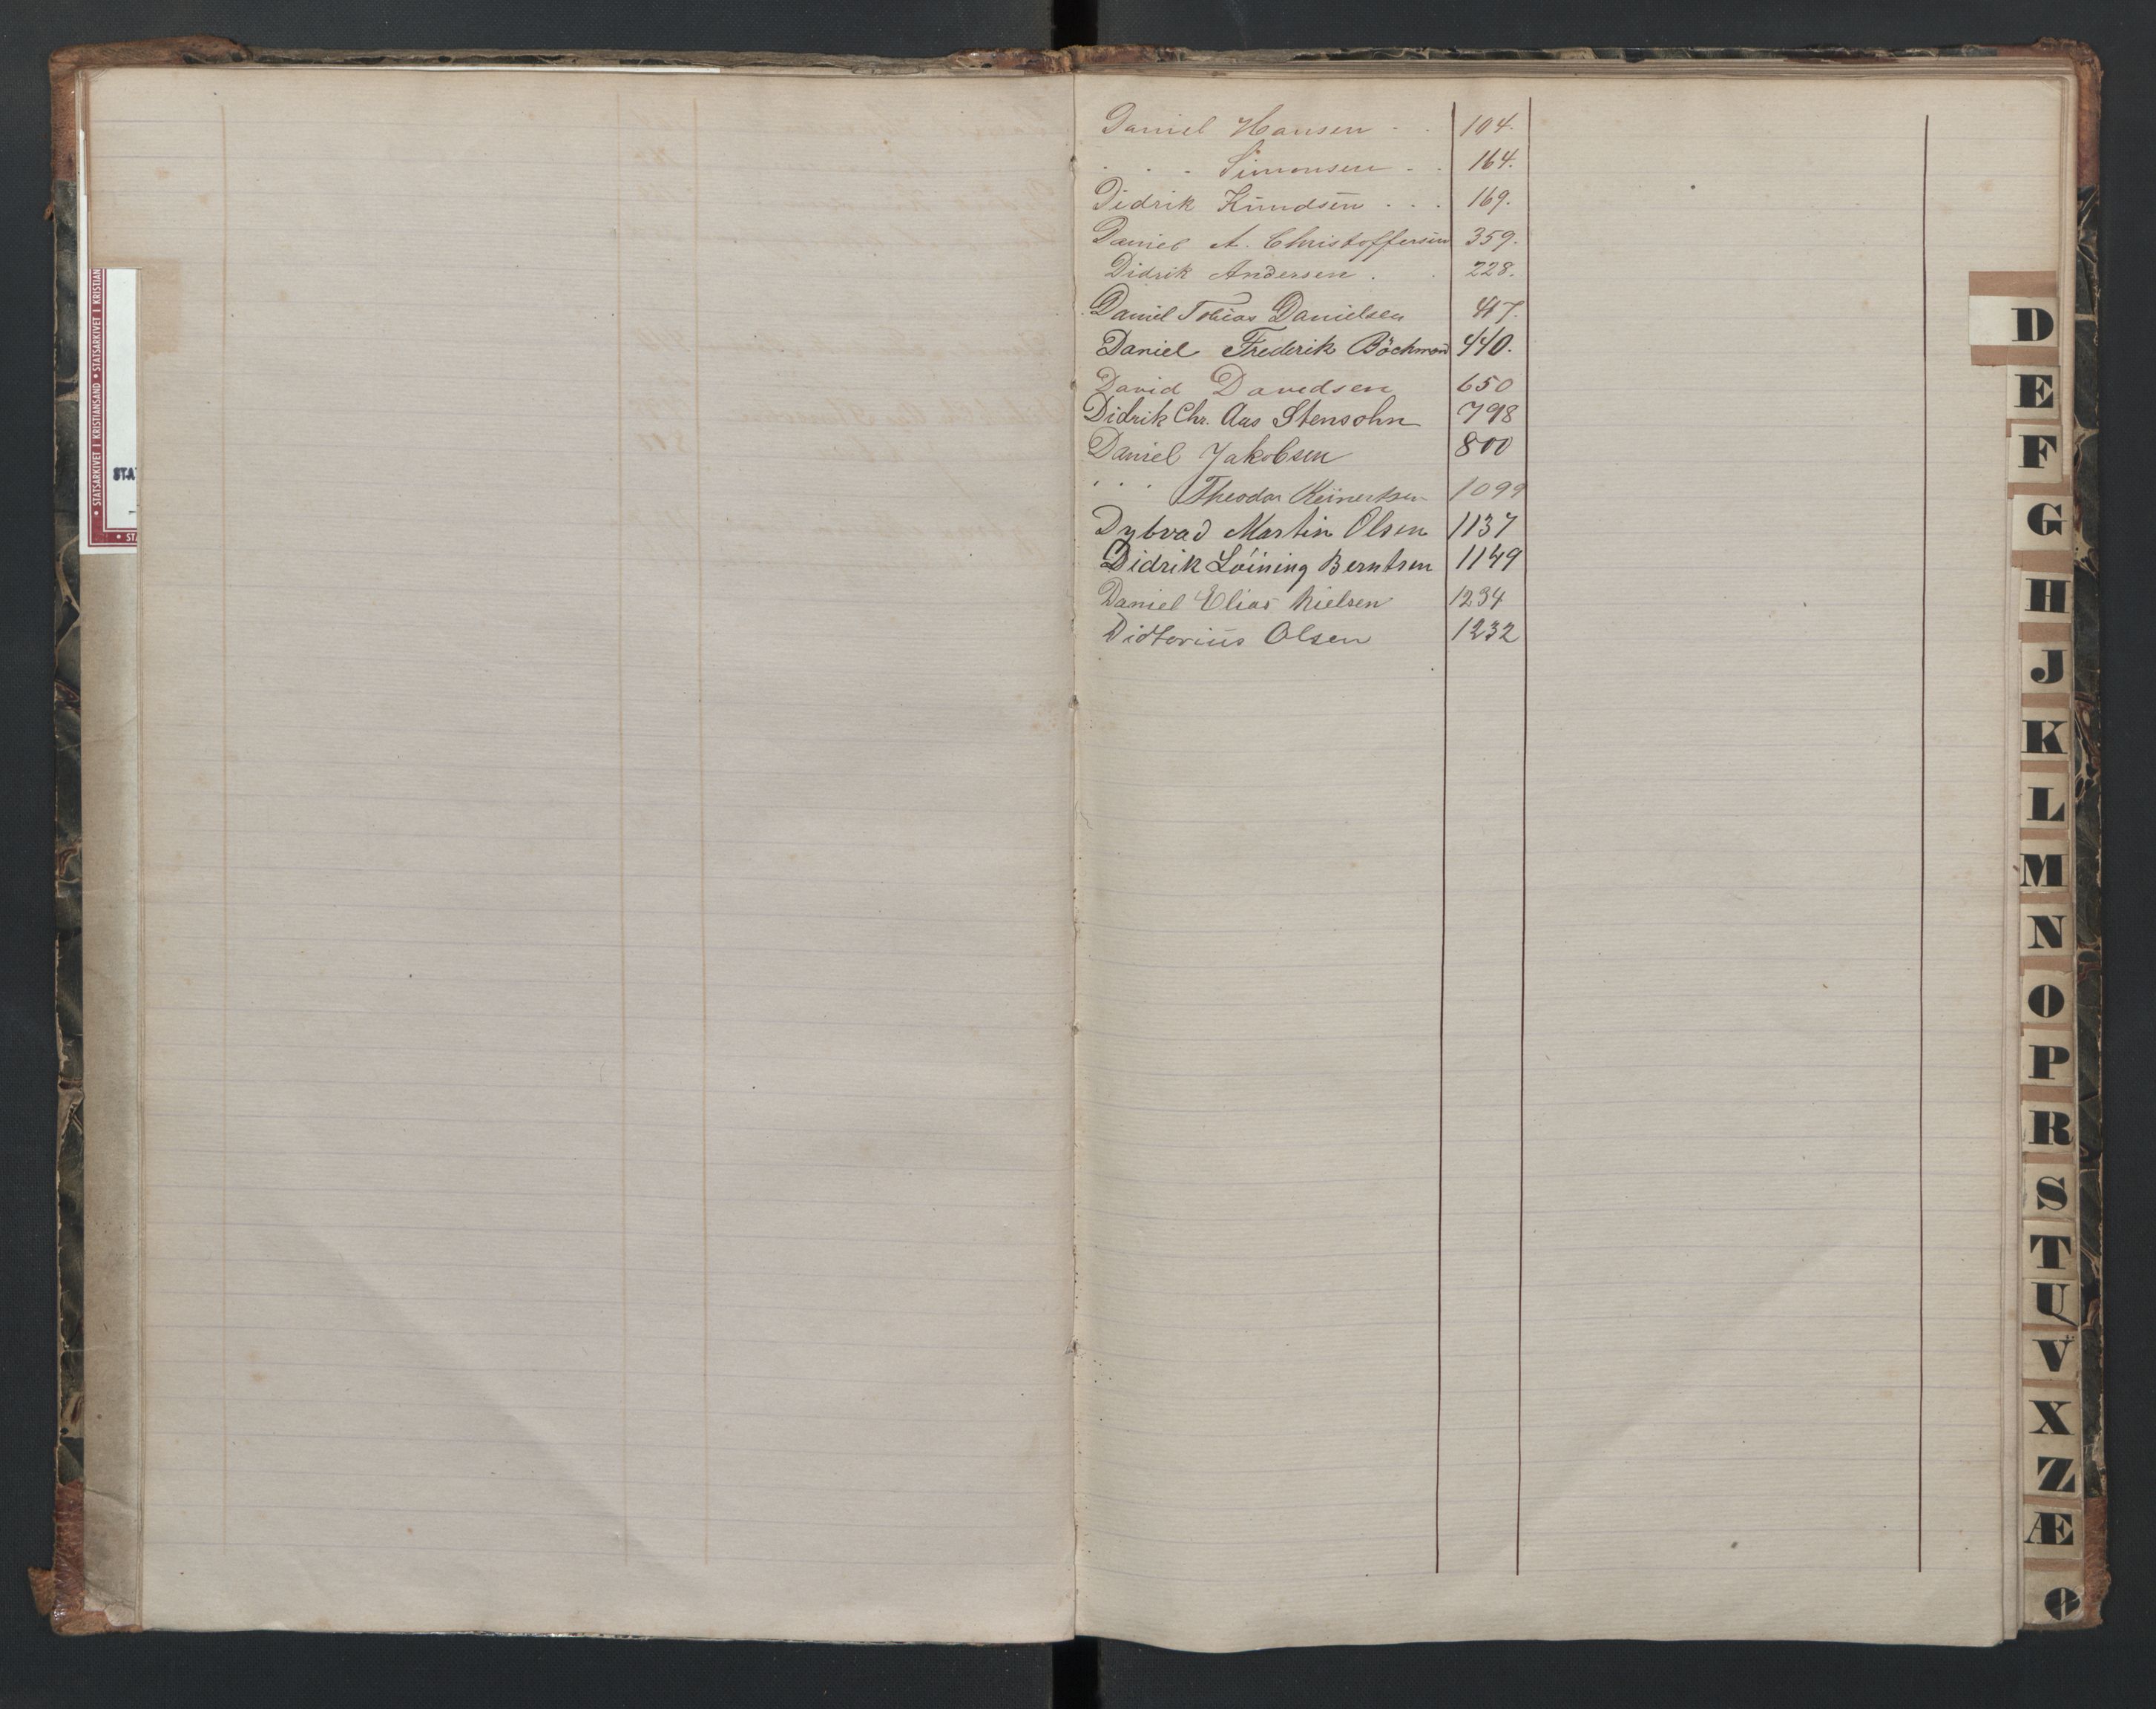 Daniel Hansen . . 104.
. . . Simonsen . . 164.
Didrik Knudsen . . . 169.
Daniel A. Christoffersen 359.
Didrik Andersen . . 228.
Daniel Tobias Danielsen 417.
Daniel Frederik Böchman 440.
David Davidsen 650
Didrik Chr. Aas Stensohn 798
Daniel Jakobsen 800
. . . Theodor Reinertsen 1099
Dybvad Martin Olsen 1137
Didrik Löining Berntsen 1149
Daniel Elias Nielsen 1234
Didtorius Olsen 1232
D
E
F
G
H
J
K
L
M
N
O
P
R
S
T
U
V
X
Z
Æ
Ø
• STATSARKIVET I KRISTIANSAND • STATSARKIVET I KRISTIAN
STA
• ST